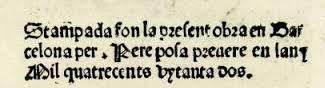 Stampada fon la present obra en Bar
celona per. Pere posa prevere en lany
Mil quatrecents vytanta dos.